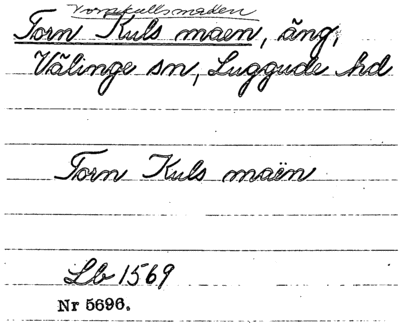 Tornkullsmaden
Torn Kuls maen, äng,
Välinge sn, Luggude hd
Torn Kuls maën
Lb 1569
Nr 5696.